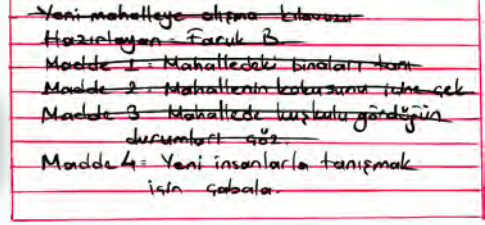 Yeni mahalleye alışma kılavuzu
Hazırlayan - Faruk B
Madde 1 : Mahalledeki binaları tanı
Madde 2 : Mahallenin kokusunu içine çek
Madde 3 Mahallede kuşkulu gördüğün
durumları çöz.
Madde 4 : Yeni insanlarla tanışmak
için çabala.